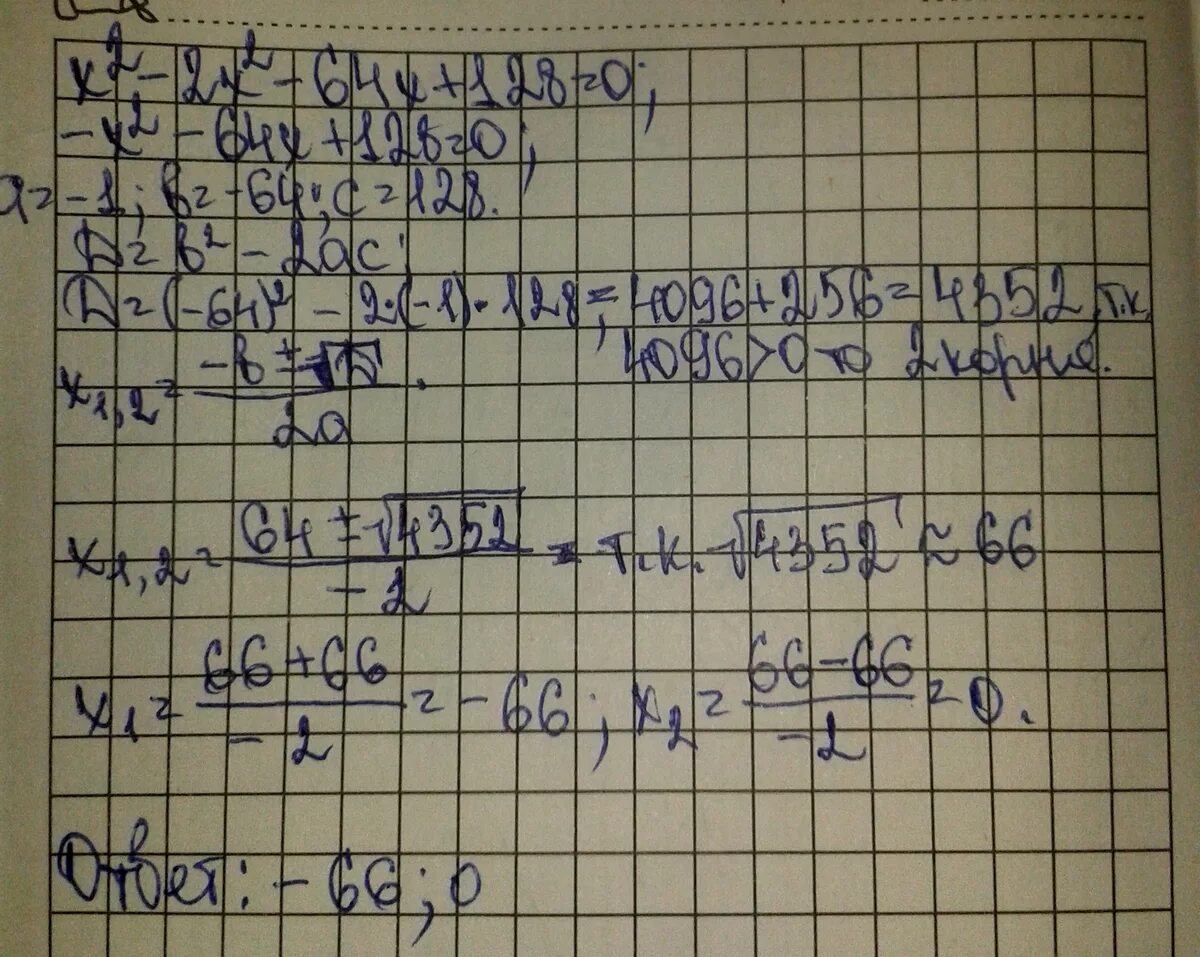 x² - 2x² - 64x + 128 = 0;
-x² - 64x + 128 = 0;
a = -1; b = -64; c = 128.
D = b² - 2ac;
D = (-64)² - 2·(-1)·128 = 4096 + 256 = 4352, т.к.
4096 > 0 то 2 корня.
x₁,₂ = (-b ± √D) / 2a.
x₁,₂ = (64 ± √4352) / -2 = т.к. √4352 ≈ 66
x₁ = (66 + 66) / -2 = -66; x₂ = (66 - 66) / -2 = 0.
Ответ: -66; 0